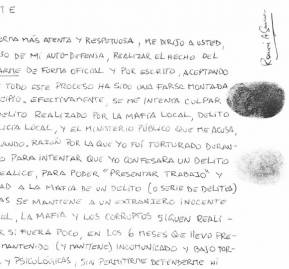 T E
ORMA MÁS ATENTA Y RESPETUOSA, ME DIRIJO A USTED,
SO DE MI AUTO-DEFENSA, REALIZAR EL HECHO DEL
ARME DE FORMA OFICIAL Y POR ESCRITO, ACEPTANDO
E TODO ESTE PROCESO HA SIDO UNA FARSA MONTADA
CIPIO. EFECTIVAMENTE, SE ME INTENTA CULPAR
DELITO REALIZADO POR LA MAFIA LOCAL, DELITO
LICÍA LOCAL, Y EL MINISTERIO PÚBLICO QUE ME ACUSA,
LANDO. RAZÓN POR LA QUE YO FUÍ TORTURADO DURAN-
O PARA INTENTAR QUE YO CONFESARA UN DELITO
REALICE, PARA PODER "PRESENTAR TRABAJO" Y
AD A LA MAFIA DE UN DELITO (O SERIE DE DELITOS)
AS SE MANTIENE A UN EXTRANJERO INOCENTE
AL, LA MAFIA Y LOS CORRUPTOS SIGUEN REALI-
R SI FUERA POCO, EN LOS 6 MESES QUE LLEVO PRE-
MANTENIDO (Y MANTIENE) INCOMUNICADO Y BAJO TOR-
Y PSICOLÓGICAS, SIN PERMITIRME DEFENDERME NI